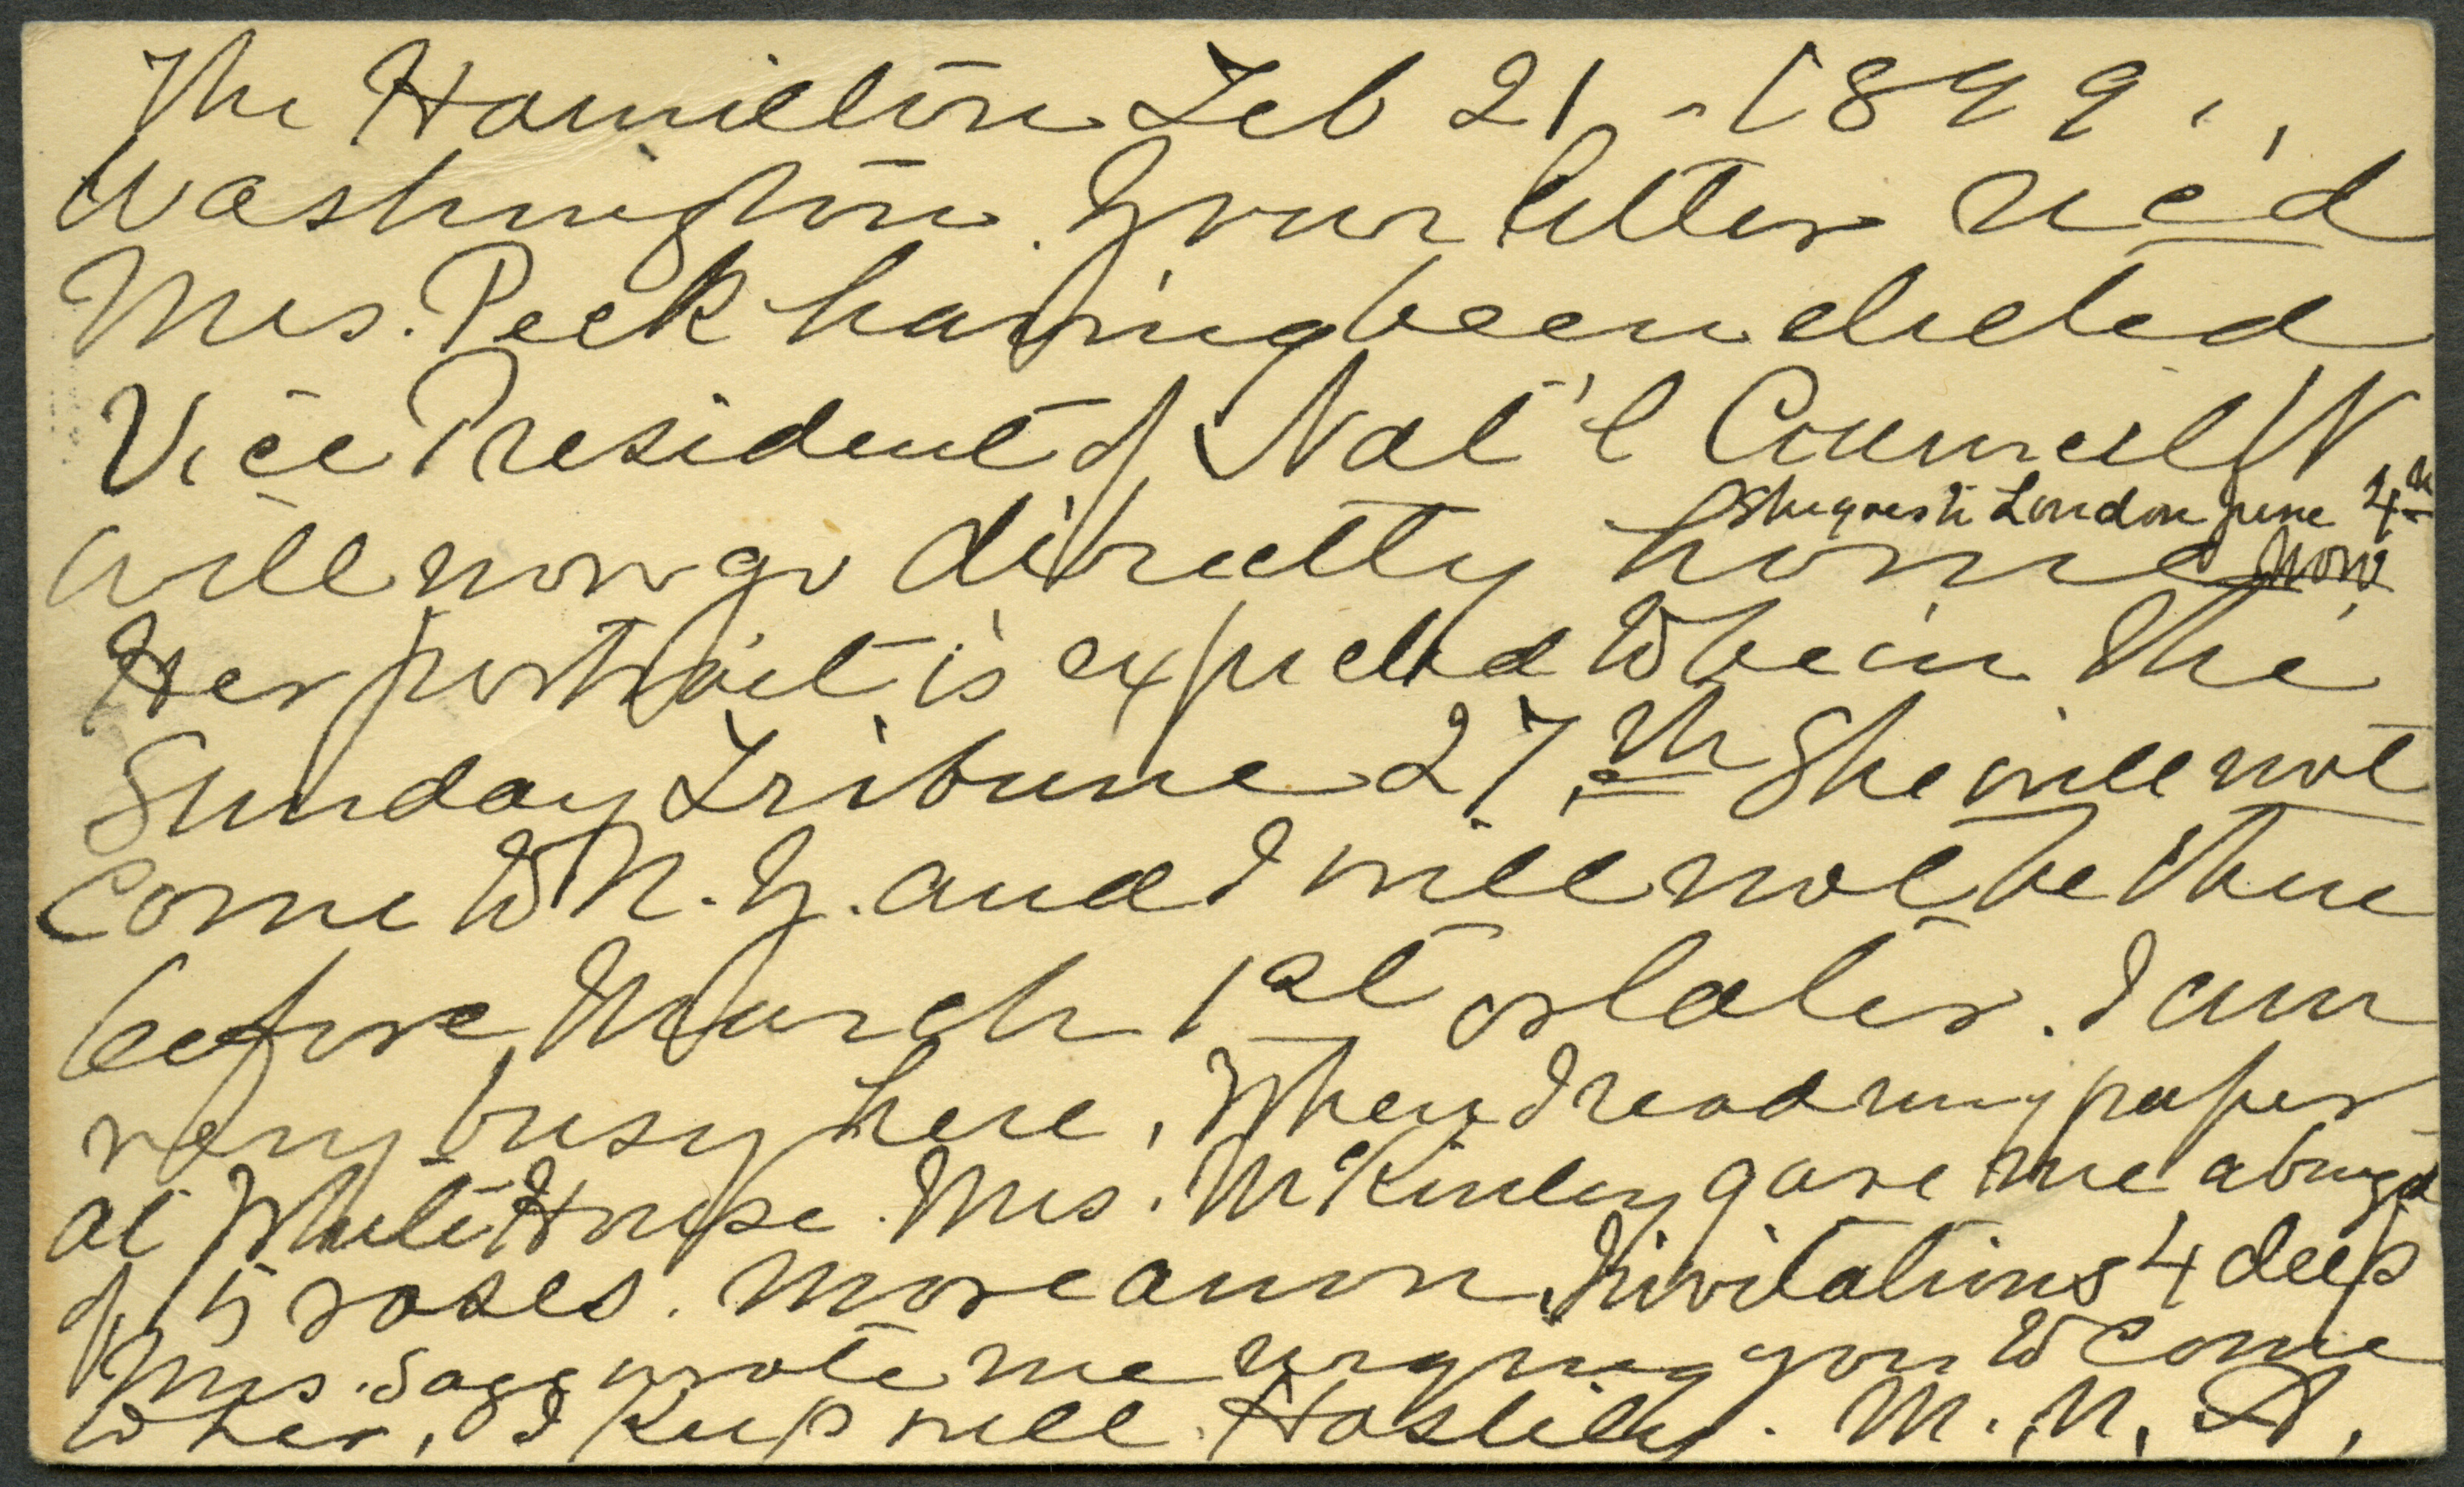 The Hamilton Feb 21 - 1899.,
Washington. Your letter rec'd
Mrs. Peck having been elected
Vice President of Nat'l Council W
She goes to London June 4th
will now go directly home now
Her portrait is expected to be in the
Sunday Tribune 27.th She will not
come to N. Y. and I will not be there
before March 1st or later. I am
very busy here. When I read my paper
at White House. Mrs. McKinley gave me a
of 15 roses. More anon. Invitations 4 deep
Mrs. Sagg wrote me urging you to come
to her, I keep well. Hastily. M. N. A.